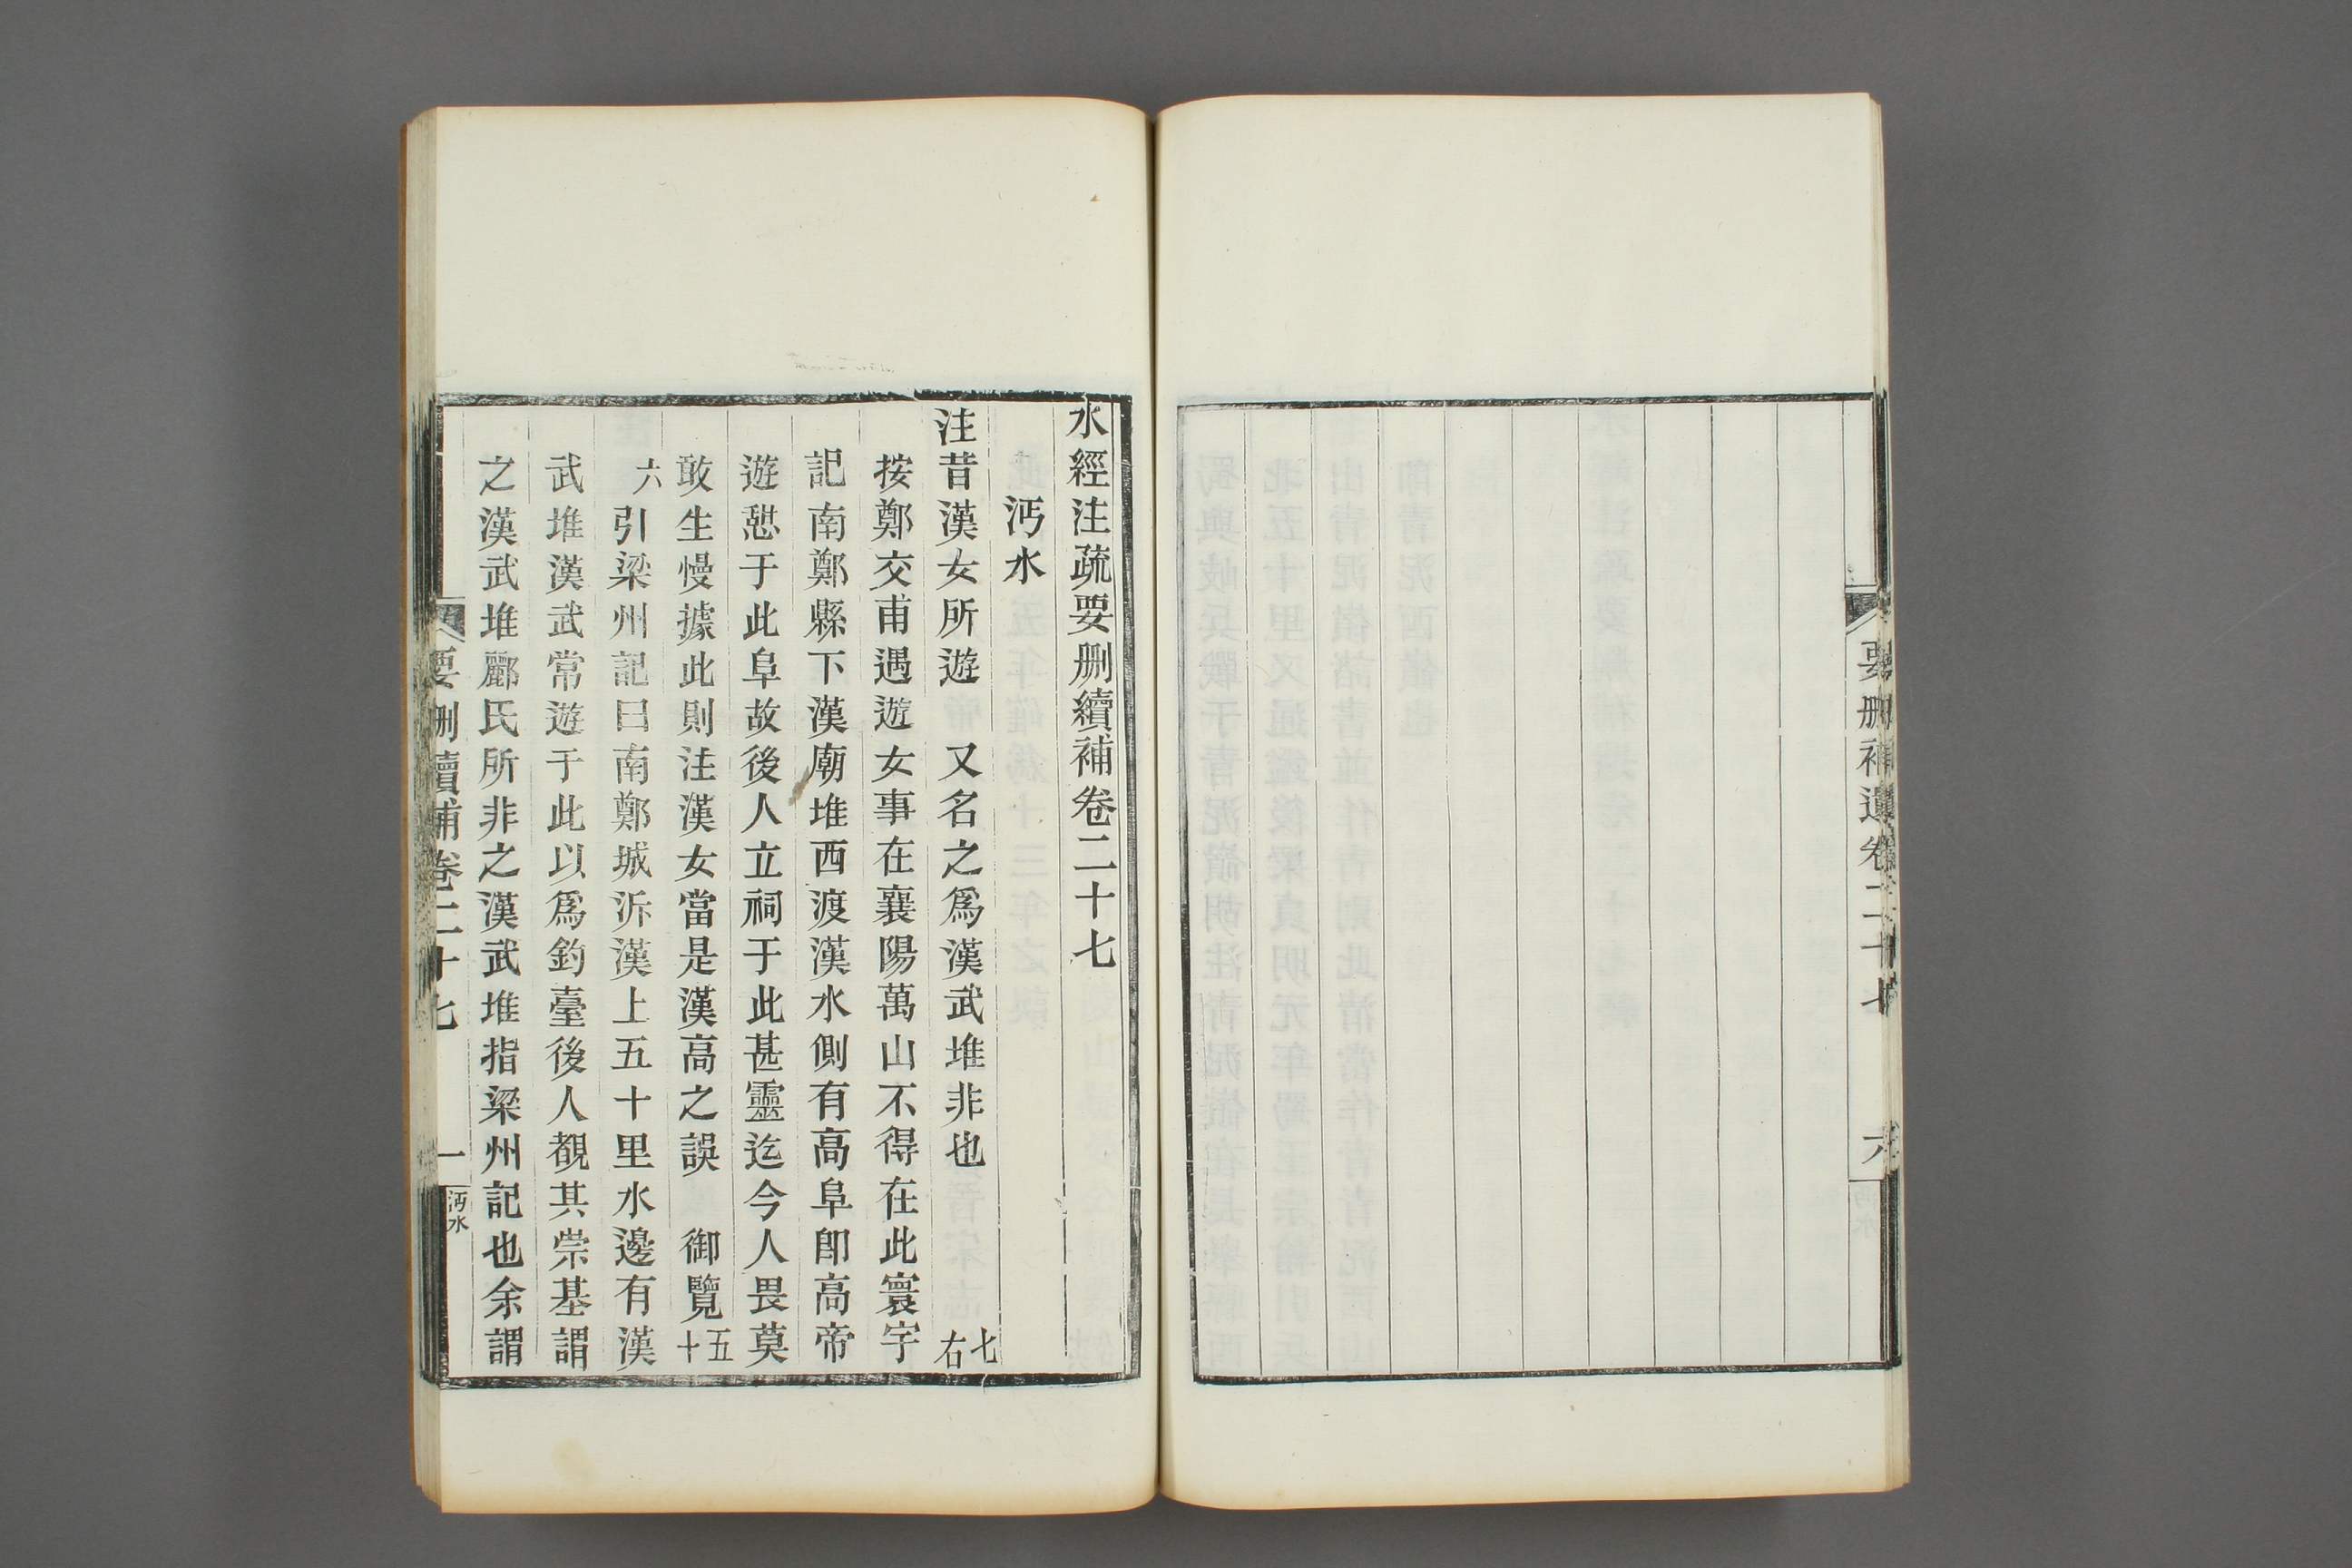 要刪補遺卷二十七
六
水經注疏要刪續補卷二十七
沔水
注昔漢女所遊　又名之爲漢武堆非也　七右
按鄭交甫遇遊女事在襄陽萬山不得在此寰宇
記南鄭縣下漢廟堆西渡漢水側有高阜卽高帝
遊憇于此阜故後人立祠于此甚靈迄今人畏莫
敢生慢據此則注漢女當是漢高之誤　御覽五十
六引梁州記曰南鄭城泝漢上五十里水邊有漢
武堆漢武常遊于此以爲釣臺後人覩其崇基謂
之漢武堆酈氏所非之漢武堆指梁州記也余謂
要刪續補卷二十七
一
沔水